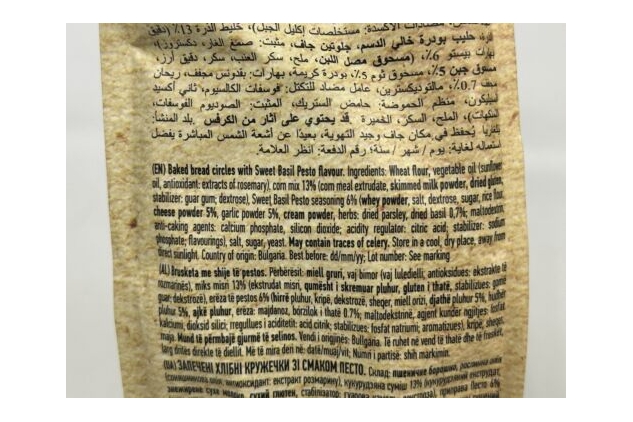 حليب بودرة خالي الدسم، جلوتين جاف، مثبت: صمغ الغار، دكستروز)،
بهارات بيستو 6٪، (مسحوق مصل اللبن، ملح، سكر، سكر العنب، دقيق أرز،
مسحوق جبن 5٪، مسحوق ثوم 5٪، بودرة كريمة، بهارات: بقدونس مجفف، ريحان
مجفف 0.7٪، مالتوديكسترين، عامل مضاد للتكتل: فوسفات الكالسيوم، ثاني أكسيد
السيليكون، منظم الحموضة: حامض الستريك، المثبت: الصوديوم الفوسفات،
النكهات)، الملح، السكر، الخميرة. قد يحتوي على آثار من الكرفس. بلد المنشأ:
بلغاريا يُحفظ في مكان جاف وجيد التهوية، بعيدًا عن أشعة الشمس المباشرة يفضل
استعماله لغاية: يوم / شهر / سنة؛ رقم الدفعة: انظر العلامة.
(EN) Baked bread circles with Sweet Basil Pesto flavour. Ingredients: Wheat flour, vegetable oil (sunflower
oil, antioxidant: extracts of rosemary), corn mix 13% (corn meal extrudate, skimmed milk powder, dried gluten,
stabilizer: guar gum; dextrose), Sweet Basil Pesto seasoning 6% (whey powder, salt, dextrose, sugar, rice flour,
cheese powder 5%, garlic powder 5%, cream powder, herbs: dried parsley, dried basil 0,7%; maltodextrin,
anti-caking agents: calcium phosphate, silicon dioxide; acidity regulator: citric acid; stabilizer: sodium
phosphate; flavourings), salt, sugar, yeast. May contain traces of celery. Store in a cool, dry place, away from
direct sunlight. Country of origin: Bulgaria. Best before: dd/mm/yy; Lot number: See marking
(AL) Brusketa me shije të pestos. Përbërësit: miell gruri, vaj bimor (vaj luledielli, antioksidues: ekstrakte të
rozmarinës), miks misri 13% (ekstrudat misri, qumësht i skremuar pluhur, gluten i thatë, stabilizues: gomë
guar; dekstrozë), erëza të pestos 6% (hirrë pluhur, kripë, dekstrozë, sheqer, miell orizi, djathë pluhur 5%, hudhër
pluhur 5%, ajkë pluhur, erëza: majdanoz, borzilok i thatë 0.7%; maltodekstrinë, agjent kundër ngjitjes: fosfat
kalciumi, dioksid silici; rregullues i aciditetit: acid citrik; stabilizues: fosfat natriumi; aromatizues), kripë, sheqer,
maja. Mund të përmbajë gjurmë të selinos. Vendi i origjinës: Bullgaria. Të ruhet në vend të thatë dhe të freskët,
larg dritës direkte të diellit. Më të mira deri në: datë/muaj/vit; Numri i partisë: shih markimin.
(UA) ЗАПЕЧЕНІ ХЛІБНІ КРУЖЕЧКИ ЗІ СМАКОМ ПЕСТО. Склад: пшеничне борошно, рослинна олія
(соняшникова олія, антиоксидант: екстракт розмарину), кукурудзяна суміш 13% (кукурудзяний екструдат,
знежирене сухе молоко, сухий глютен, стабілізатор: гуарова декстроза), приправа Песто 6%